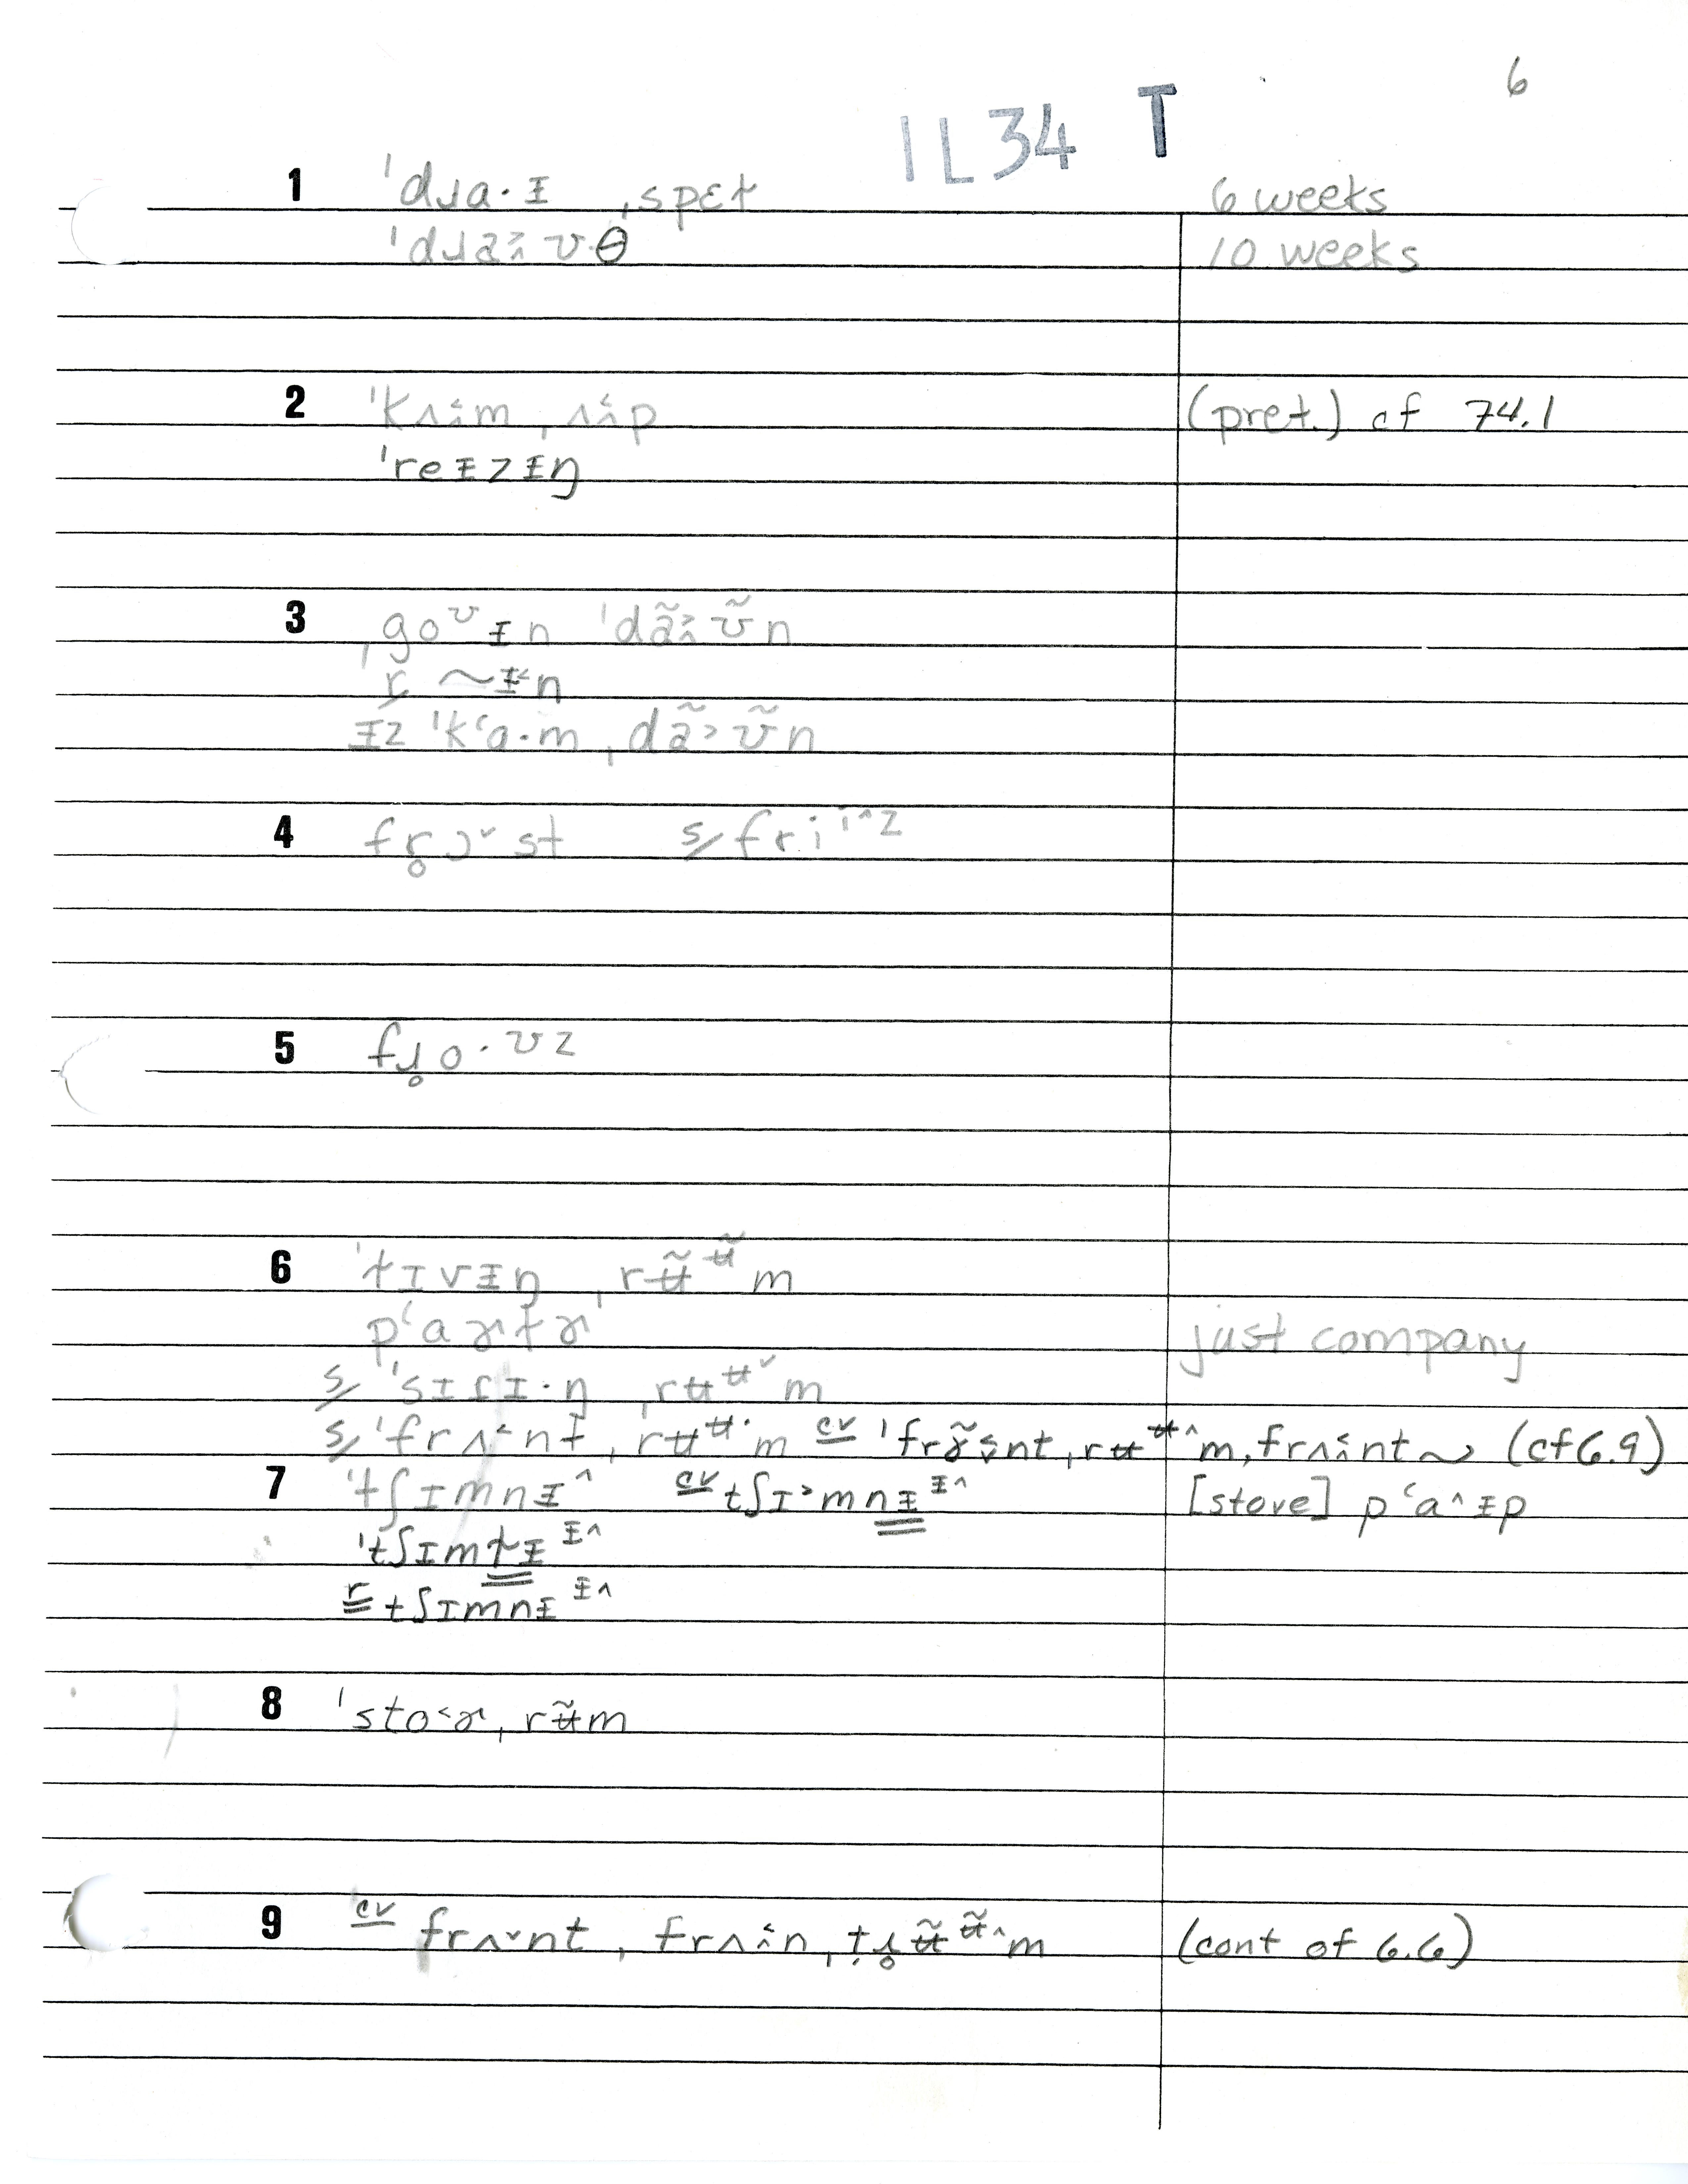 6
IL34 T
1 ˈdɹa·ᵻ ˌspɛɫ 6 weeks
ˈdɹa̭˃ʊθ 10 weeks
2 ˈkʌ̭˂m ˌʌ̭˂p (pret.) cf 74.1
ˈreᵻzᵻŋ
3 ˌgoᶷᵻn ˈdã̭˃ʊ̃n
r ~ᵻ˂n
ᵻz ˈkʻɑ·m ˌdã˃ʊ̃n
4 fr̥ɔ˅st s/ friⁱ^z
5 fɹ̥o·ʊz
6 ˈɫɪvᵻŋ ˌrʉ̃ʉ̃m
pʻaɚɫɚ just company
s/ ˈsɪɾɪ·ŋ ˌrʉʉ˅m
s/ ˈfrʌ˂nt ˌrʉʉ·m cv ˈfrɤ̭̃˂nt ˌrʉʉ^m, frʌ̭˂nt ~ (cf 6.9)
7 ˈtʃɪmnᵻ^ cv tʃɪ˃mnᵻᵻ^ [stove] pʻa^ᵻp
ˈtʃɪmɫᵻᵻ^
r tʃɪmnᵻᵻ^
8 ˈsto˂ɚ ˌrʉ̃m
9 cv frʌ˅nt, frʌ̭˂n ˌt̩ɹ̥ʉ̃ʉ̃^m (cont of 6.6)